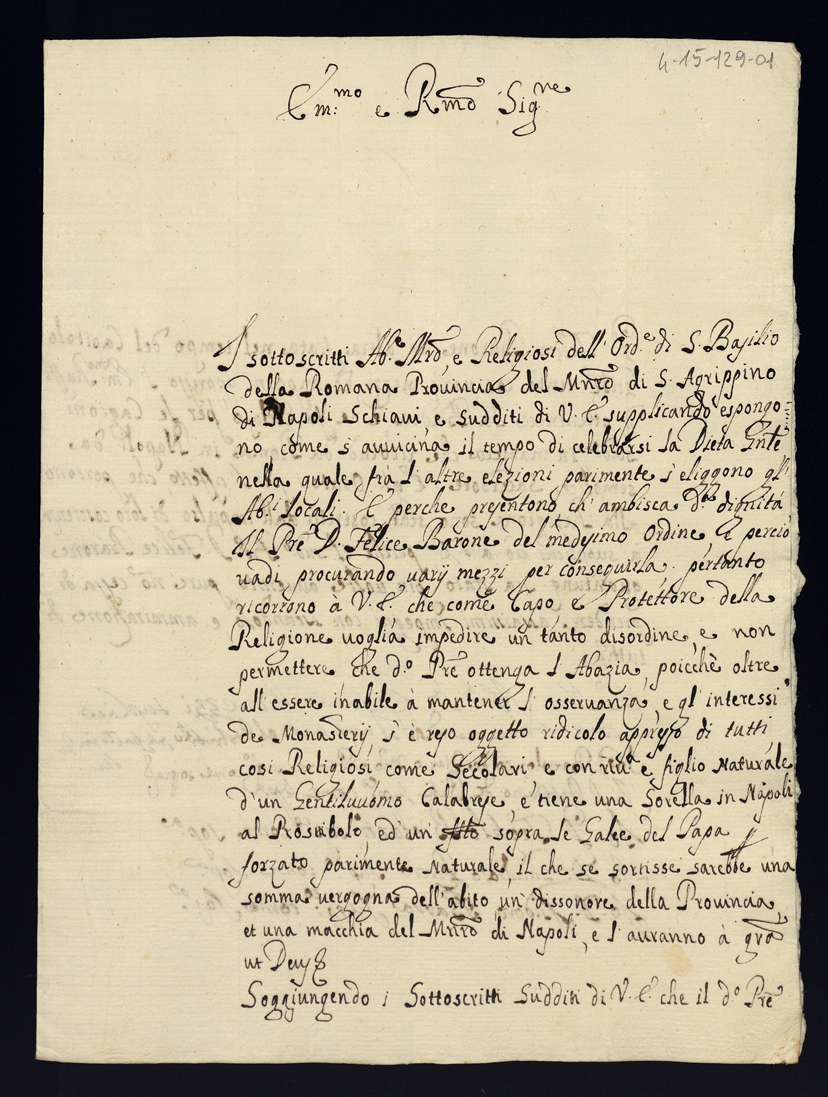 4-15-129-01
Em:mo e Rmo Sigre
I sottoscritti Ab.e Mro e Religiosi dell' Ord.e di S. Basilio
della Romana Provincia del Mnro di S. Agrippino
di Napoli Schiavi, e sudditi di V. E. supplicando espongo=
no come s' avvicina il tempo di celebrarsi la Dieta Gnle
nella quale frà l' altre elezioni parimente s' eliggono gl'
Ab.i locali. E perche presentono ch' ambisca d.a dignità
il Pre D. Felice Barone del medesimo Ordine e perciò
vadi procurando varij mezzi per conseguirla. pertanto
ricorrono à V. E. che come Capo, e Protettore della
Religione voglia impedire un tanto disordine, e non
permettere che d.o Pre ottenga l' Abazia, poicchè oltre
all' essere inabile à mantener l' osservanza, e gl' interessi
de Monasterij s' è reso oggetto ridicolo appresso di tutti
cosi Religiosi come Secolari e è figlio Naturale
d' un Gentiluuomo Calabrese, e tiene una Sorella in Napoli
al Prostibolo, ed un sopra le Galee del Papa
forzato parimente Naturale, il che se sortisse sarebbe una
somma vergogna dell' abito un dissonore della Provincia
et una macchia del Mnro di Napoli, e l' auranno à grã
ut Deus
Soggiungendo i Sottoscritti Sudditi di V. E. che il d.o Pre